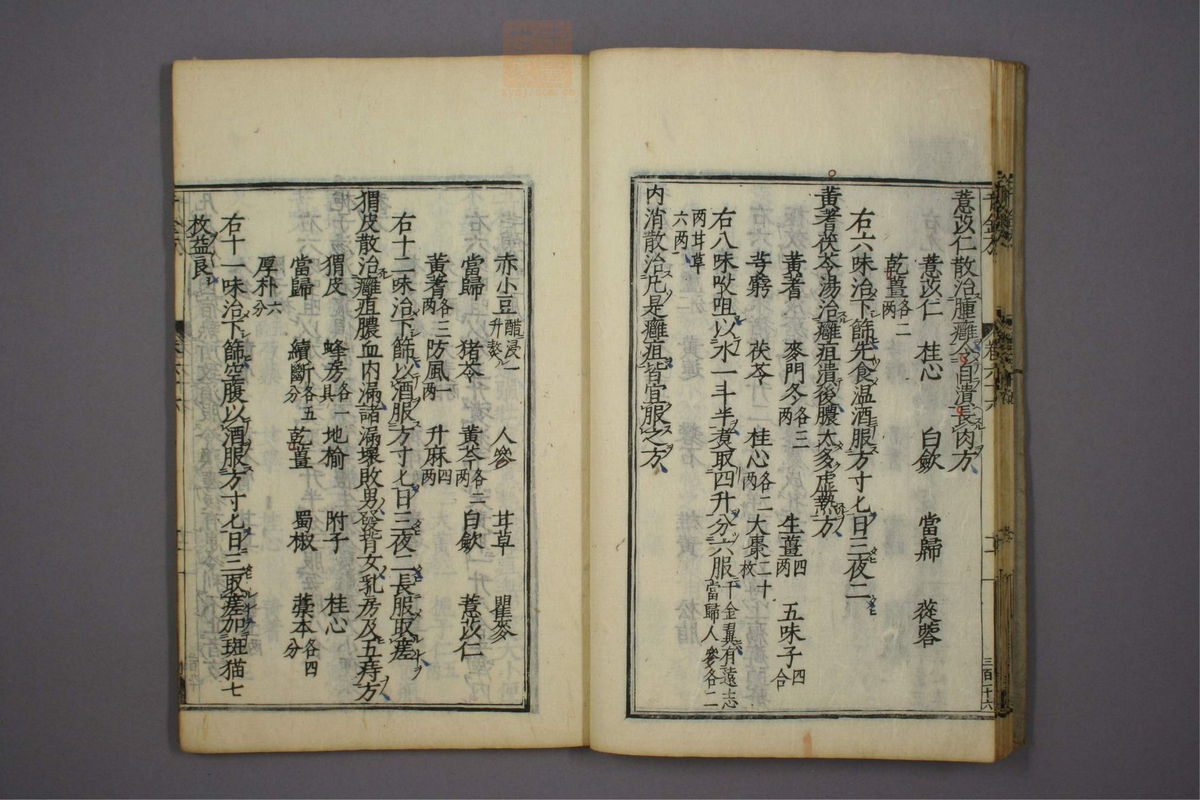 薏苡仁散治腫癰令自潰長肉方
薏苡仁　桂心　白歛　當歸　蓯蓉
乾薑各二兩
右六味治下篩先食温酒服方寸匕日三夜二
黃耆茯苓湯治癰疽潰後膿太多虛熱方
黃耆　麥門冬各三兩　生薑四兩　五味子四合
芎藭　茯苓　桂心各二兩　大棗二十枚
右八味㕮咀以水一斗半煮取四升分六服千金翼有遠志當歸人參各二
兩甘草六兩
內消散治凡是癰疽皆宜服之方
赤小豆醋浸一升熬　人參　甘草　瞿麥
當歸　猪苓　黃芩各二兩　白歛　薏苡仁
黃耆各三兩　防風一兩　升麻四兩
右十二味治下篩以酒服方寸匕日三夜一長服取差
猬皮散治癰疽膿血內漏諸漏壞敗男發背女乳房及五痔方
猬皮　蜂房各一具　地榆　附子　桂心
當歸　續斷各五分　乾薑　蜀椒　藁本各四分
厚朴六分
右十一味治下篩空腹以酒服方寸匕日三取差加斑猫七
枚益良
三百二十六